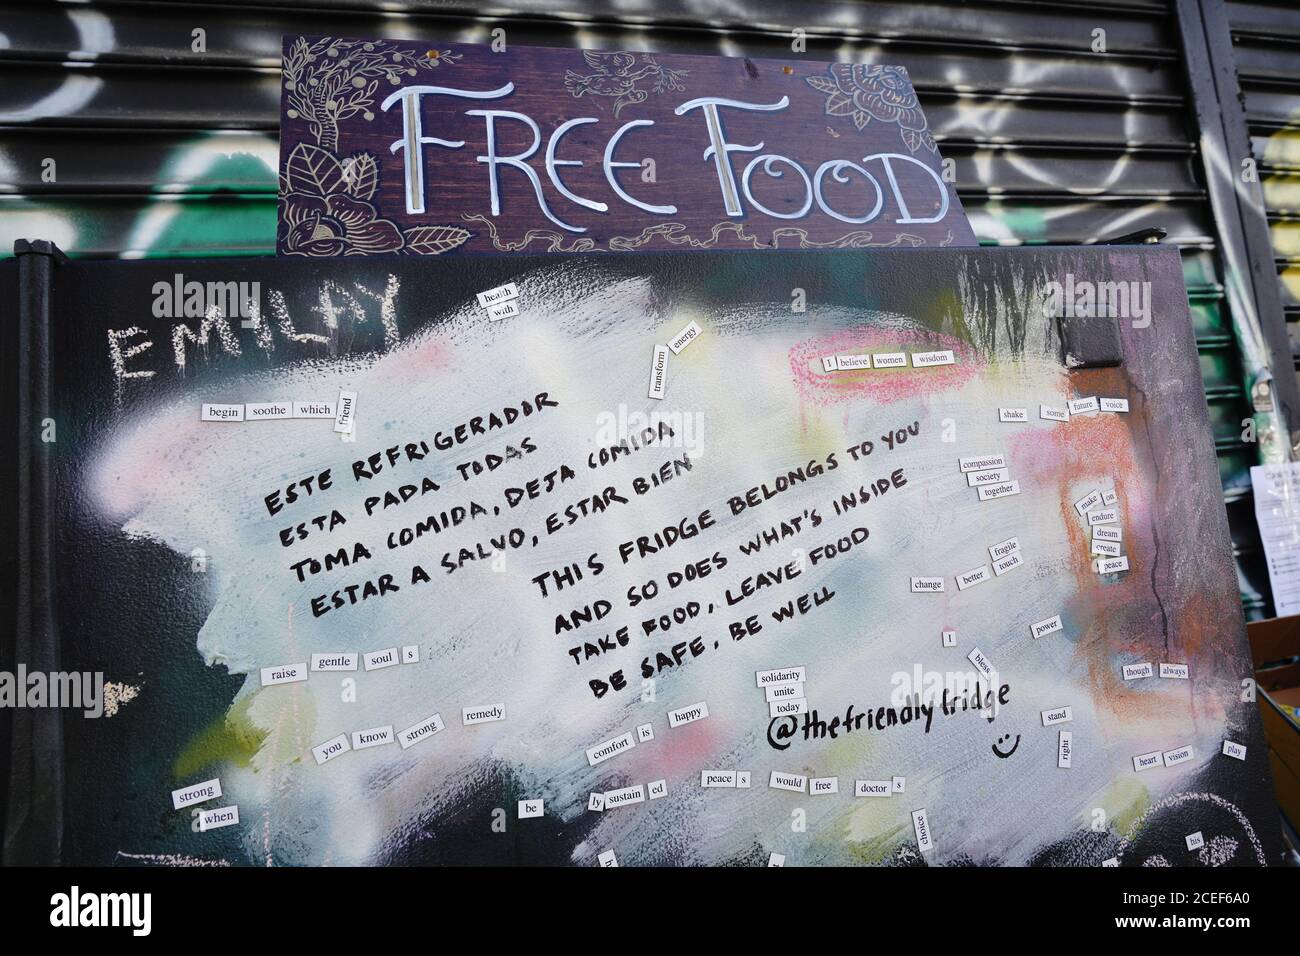 FREE FOOD
EMILAY
health
with
energy
transform
I believe women wisdom
begin soothe which friend
shake some future voice
ESTE REFRIGERADOR
ESTA PADA TODAS
TOMA COMIDA, DEJA COMIDA
ESTAR A SALVO, ESTAR BIEN
THIS FRIDGE BELONGS TO YOU
AND SO DOES WHAT'S INSIDE
TAKE FOOD, LEAVE FOOD
BE SAFE, BE WELL
@thefriendlyfridge
compassion
society
together
make on
endure
dream
create
peace
change better fragile
touch
I bless
power
though always
raise gentle soul s
solidarity
unite
today
you know strong remedy
comfort is happy
stand
right
heart vision play
strong
when
be
ly sustain ed
peace s
would free
doctor s
choice
his
alamy
Image ID: 2CEF6A0
www.alamy.com